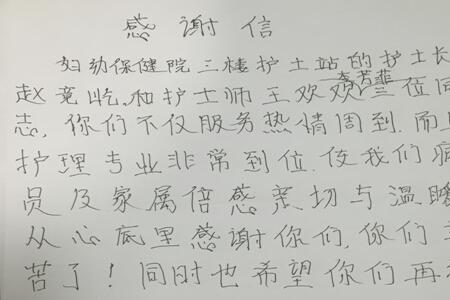 感谢信
妇幼保健院三楼护士站的护士长
赵竞屹,和护士师王欢欢李芳菲三位同
志,你们不仅服务热情周到.而且
护理专业非常到位.使我们病
员及家属倍感亲切与温暖
从心底里感谢你们,你们
苦了!同时也希望你们再